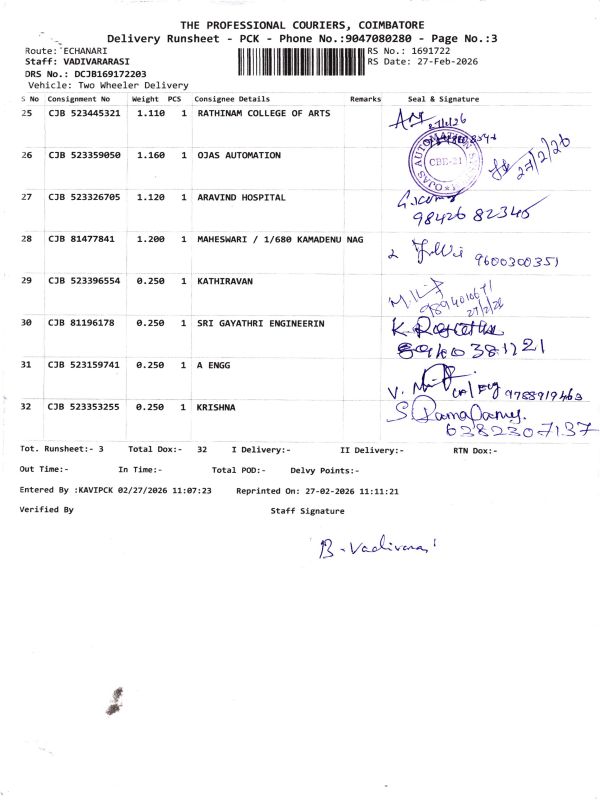 THE PROFESSIONAL COURIERS, COIMBATORE
Delivery Runsheet - PCK - Phone No.:9047080280 - Page No.:3
Route: ECHANARI
RS No.: 1691722
Staff: VADIVARARASI
RS Date: 27-Feb-2026
DRS No.: DCJB169172203
Vehicle: Two Wheeler Delivery
S No Consignment No Weight PCS Consignee Details Remarks Seal & Signature
25 CJB 523445321 1.110 1 RATHINAM COLLEGE OF ARTS
26 CJB 523359050 1.160 1 OJAS AUTOMATION
OJAS AUTOMATION
CBE-21
27/2/26
27 CJB 523326705 1.120 1 ARAVIND HOSPITAL
98426 82345
28 CJB 81477841 1.200 1 MAHESWARI / 1/680 KAMADENU NAG
9600300351
29 CJB 523396554 0.250 1 KATHIRAVAN
27/2/26
30 CJB 81196178 0.250 1 SRI GAYATHRI ENGINEERIN
31 CJB 523159741 0.250 1 A ENGG
9788919463
32 CJB 523353255 0.250 1 KRISHNA
6382307137
Tot. Runsheet:- 3 Total Dox:- 32 I Delivery:- II Delivery:- RTN Dox:-
Out Time:- In Time:- Total POD:- Delvy Points:-
Entered By :KAVIPCK 02/27/2026 11:07:23 Reprinted On: 27-02-2026 11:11:21
Verified By Staff Signature
B. Vadivarasi